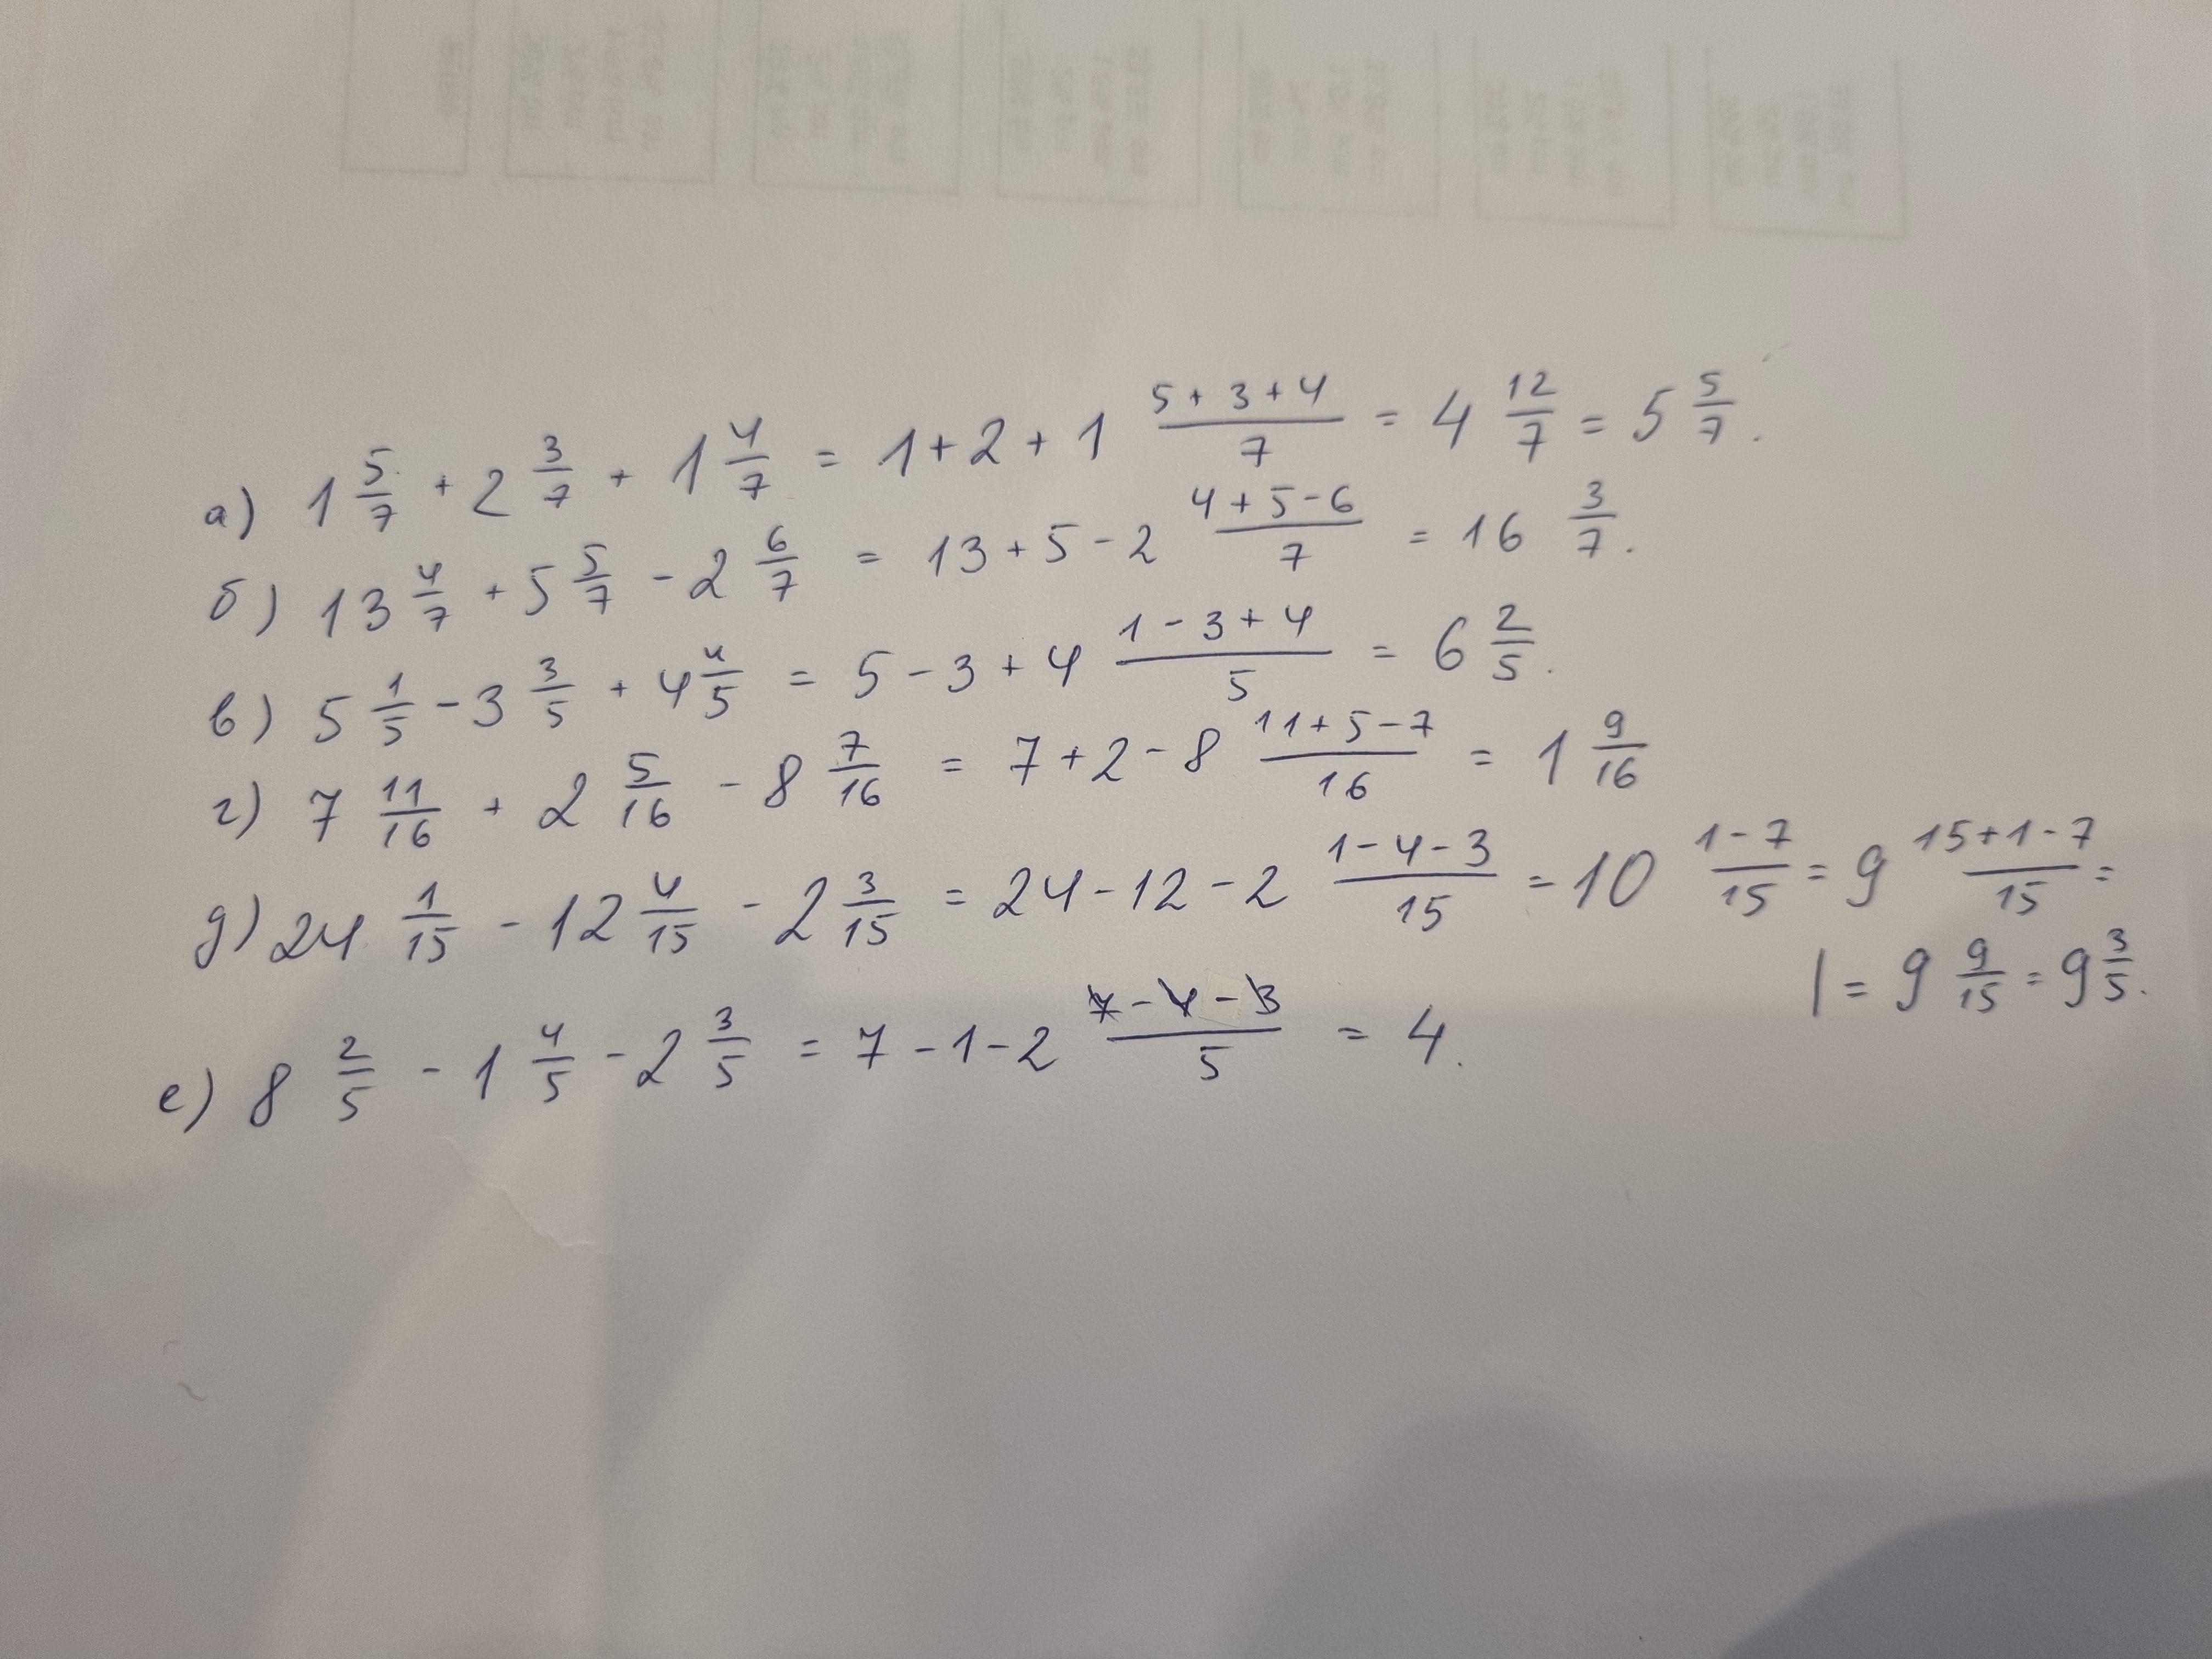 а) 1 5/7 + 2 3/7 + 1 4/7 = 1 + 2 + 1 (5 + 3 + 4)/7 = 4 12/7 = 5 5/7.
б) 13 4/7 + 5 5/7 - 2 6/7 = 13 + 5 - 2 (4 + 5 - 6)/7 = 16 3/7.
в) 5 1/5 - 3 3/5 + 4 4/5 = 5 - 3 + 4 (1 - 3 + 4)/5 = 6 2/5.
г) 7 11/16 + 2 5/16 - 8 7/16 = 7 + 2 - 8 (11 + 5 - 7)/16 = 1 9/16
д) 24 1/15 - 12 4/15 - 2 3/15 = 24 - 12 - 2 (1 - 4 - 3)/15 = 10 (1 - 7)/15 = 9 (15 + 1 - 7)/15 =
| = 9 9/15 = 9 3/5.
е) 8 2/5 - 1 4/5 - 2 3/5 = 7 - 1 - 2 (7 - 4 - 3)/5 = 4.